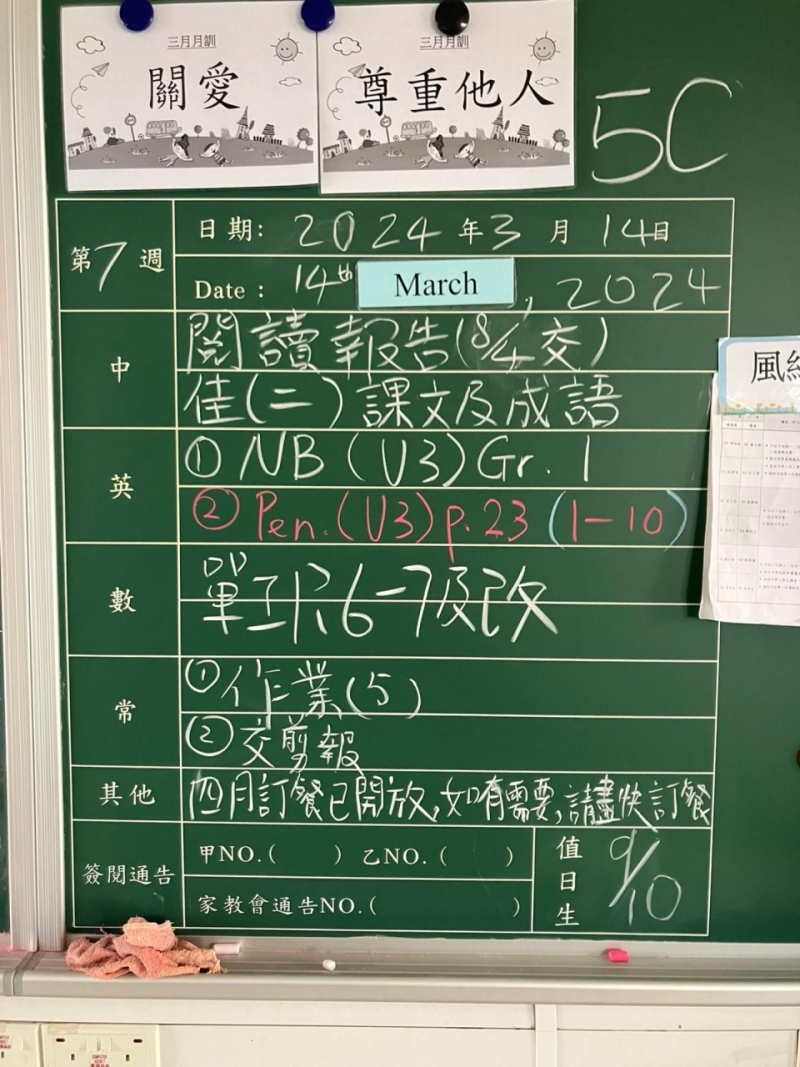 三月月訓
關愛
三月月訓
尊重他人
5C
第7週
日期: 2024 年 3 月 14 日
Date : 14th March, 2024
中
閱讀報告(8/4交)
佳(二)課文及成語
英
① NB (U3) Gr. 1
② Pen. (U3) p.23 (1-10)
數
單工P.6-7及改
常
① 作業(5)
② 交剪報
其他
四月訂餐已開放,如有需要,請盡快訂餐
簽閱通告
甲NO.( ) 乙NO.( )
家教會通告NO.( )
值日生
9/10
風紀